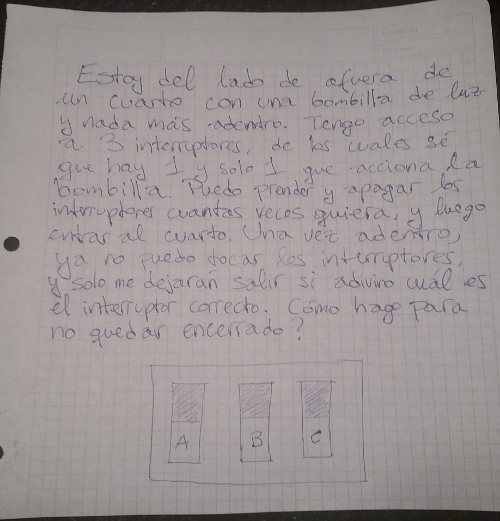 Estoy del lado de afuera de
un cuarto con una bombilla de luz
y nada más adentro. Tengo acceso
a 3 interruptores, de los cuales sé
que hay 1 y solo 1 que acciona la
bombilla. Puedo prender y apagar los
interruptores cuantas veces quiera, y luego
entrar al cuarto. Una vez adentro,
ya no puedo tocar los interruptores,
y solo me dejarán salir si adivino cuál es
el interruptor correcto. Cómo hago para
no quedar encerrado?
A B C